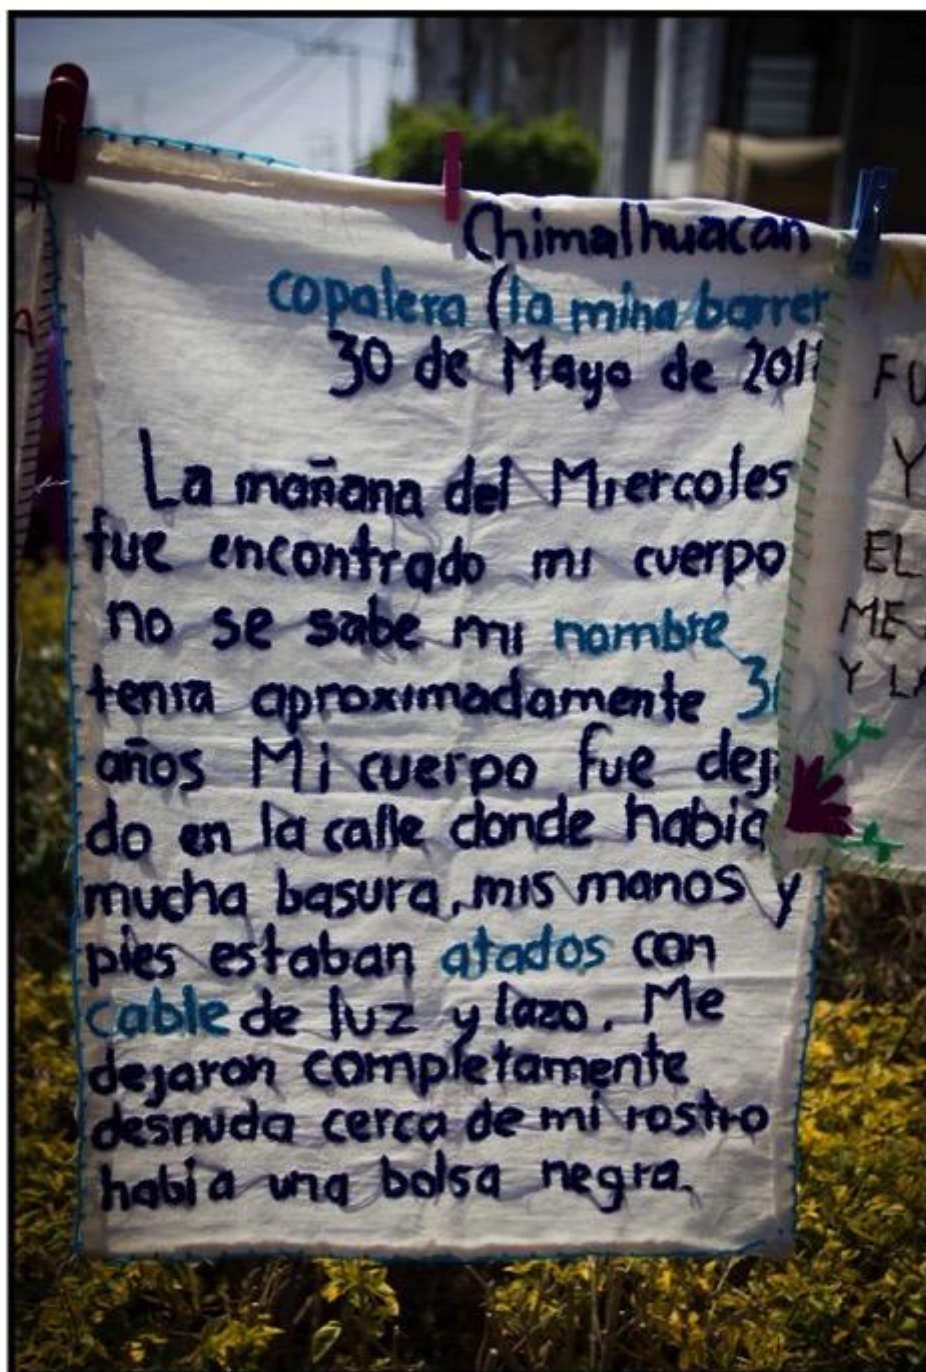 Chimalhuacan
copalera (la mina barrer
30 de Mayo de 2011
La mañana del Miercoles
fue encontrado mi cuerpo
no se sabe mi nombre
tenia aproximadamente
años Mi cuerpo fue dej
do en la calle donde habia
mucha basura, mis manos y
pies estaban atados con
cable de luz y lazo. Me
dejaron completamente
desnuda cerca de mi rostro
habia una bolsa negra.
FU
Y
EL
ME
Y LA